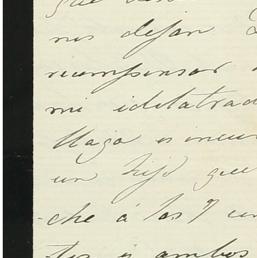 que
nos dejan
recompensar
mi idolatrad
Haga
un hijo que
che á las 7 un
tos y ambos